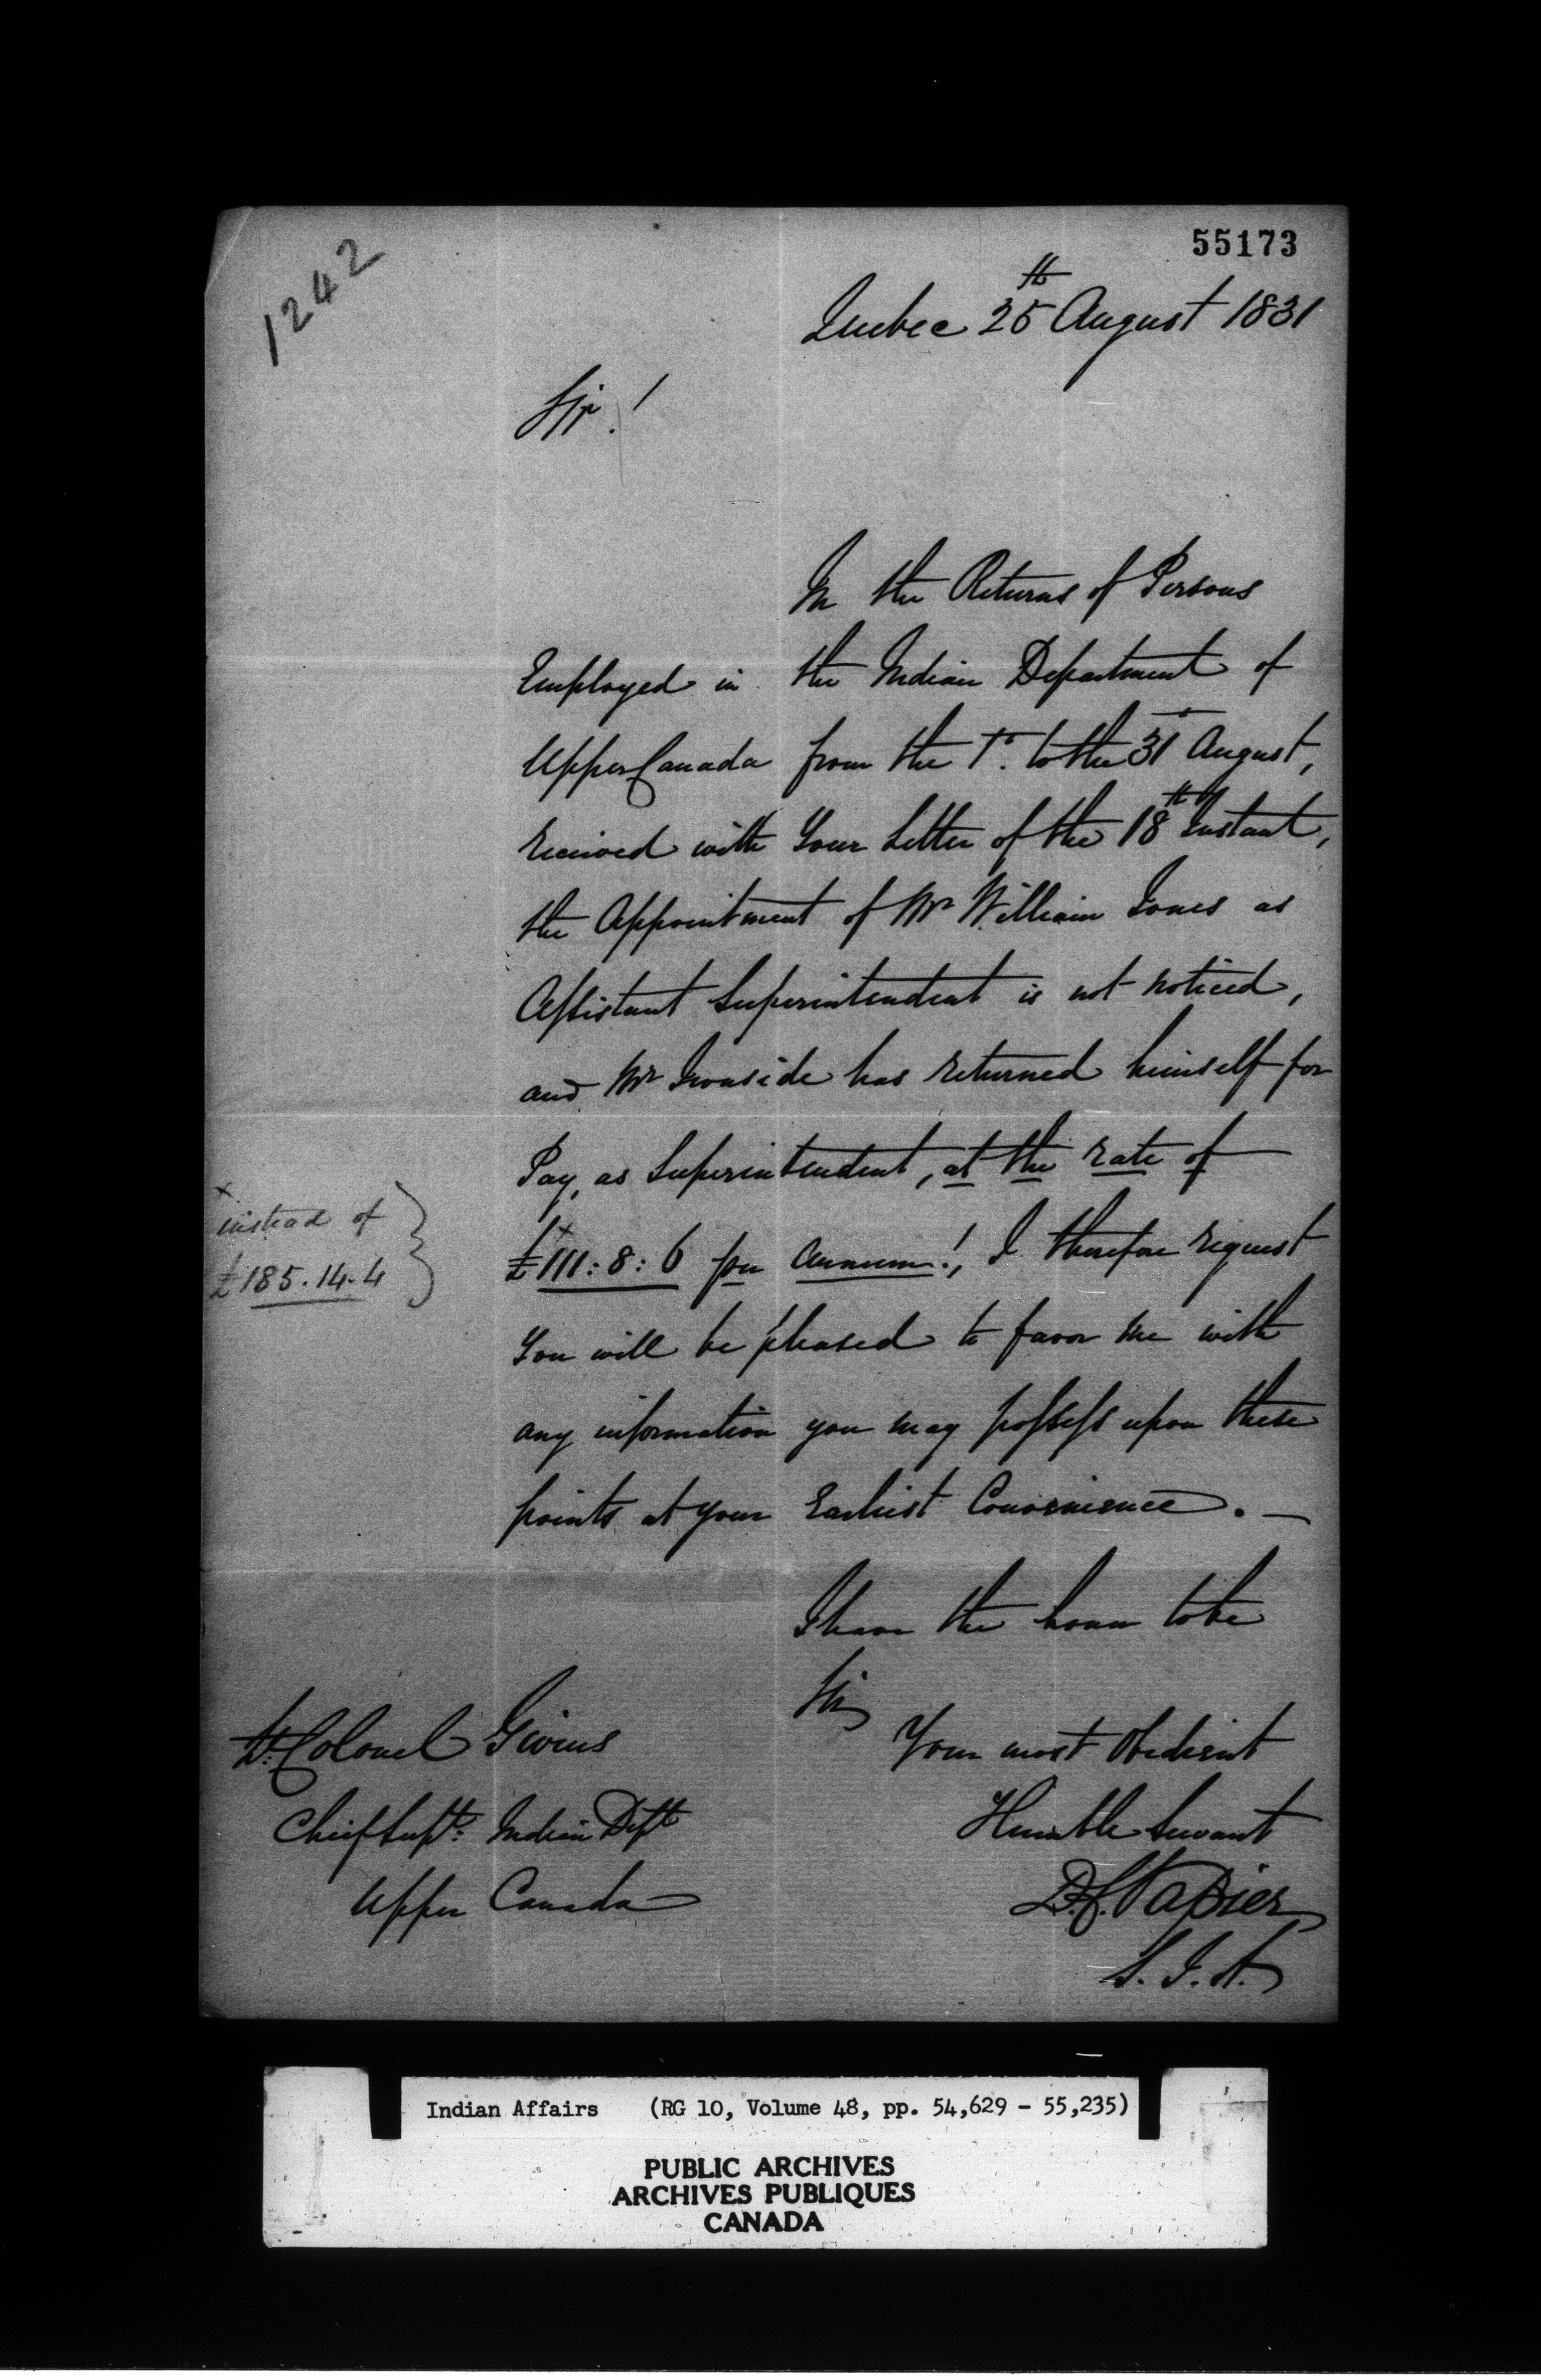 1242
55173
Quebec 25th August 1831
Sir!
In the Returns of Persons
Employed in the Indian Department of
Upper Canada from the 1st. to the 31st August,
received with Your Letter of the 18th Instant,
the Appointment of Mr William Jones as
Assistant Superintendent is not noticed,
and Mr Ironside has returned himself for
Pay, as Superintendent, at the rate of
£111:8:6 per Annum!, I therefore request
You will be pleased to favor me with
any information you may possess upon these
points at your Earliest Convenience. —
x instead of
£185.14.4
I have the honor to be
Sir
Your most Obedient
Humble Servant
D.C. Napier
S.I.A.
Lt: Colonel Givins
Chief Supt: Indian Dept
Upper Canada
Indian Affairs (RG 10, Volume 48, pp. 54,629 - 55,235)
PUBLIC ARCHIVES
ARCHIVES PUBLIQUES
CANADA